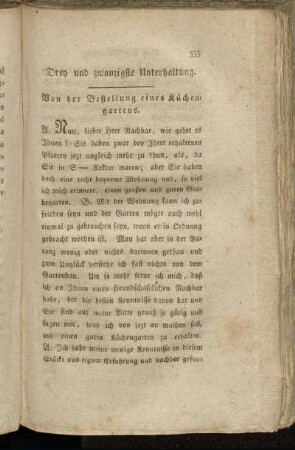 335
Drey und zwanzigste Unterhaltung.
Von der Bestellung eines Küchen-
gartens.
A. Nun, lieber Herr Nachbar, wie gehet es
Ihnen? Sie haben zwar bey Ihrer erhaltenen
Pfarrey jezt ungleich mehr zu thun, als, da
Sie in S— Rektor waren; aber Sie haben
doch eine recht bequeme Wohnung und, so viel
ich mich erinnere, einen grossen und guten Gra-
begarten. B. Mit der Wohnung kann ich zu-
frieden seyn und der Garten mögte auch wohl
einmal zu gebrauchen seyn, wenn er in Ordnung
gebracht worden ist. Man hat aber in der Va-
canz wenig oder nichts darinnen gethan und
zum Unglück verstehe ich fast nichts von dem
Gartenbau. Um so mehr freue ich mich, daß
ich an Ihnen einen freundschaftlichen Nachbar
habe, der die besten Kenntnisse davon hat und
Sie sind auf meine Bitte gewiß so gütig und
sagen mir, was ich von jezt an machen soll,
um einen guten Küchengarten zu erhalten.
A. Ich habe meine wenige Kenntnisse in diesem
Stücke aus eigner Erfahrung und nachher gesam-